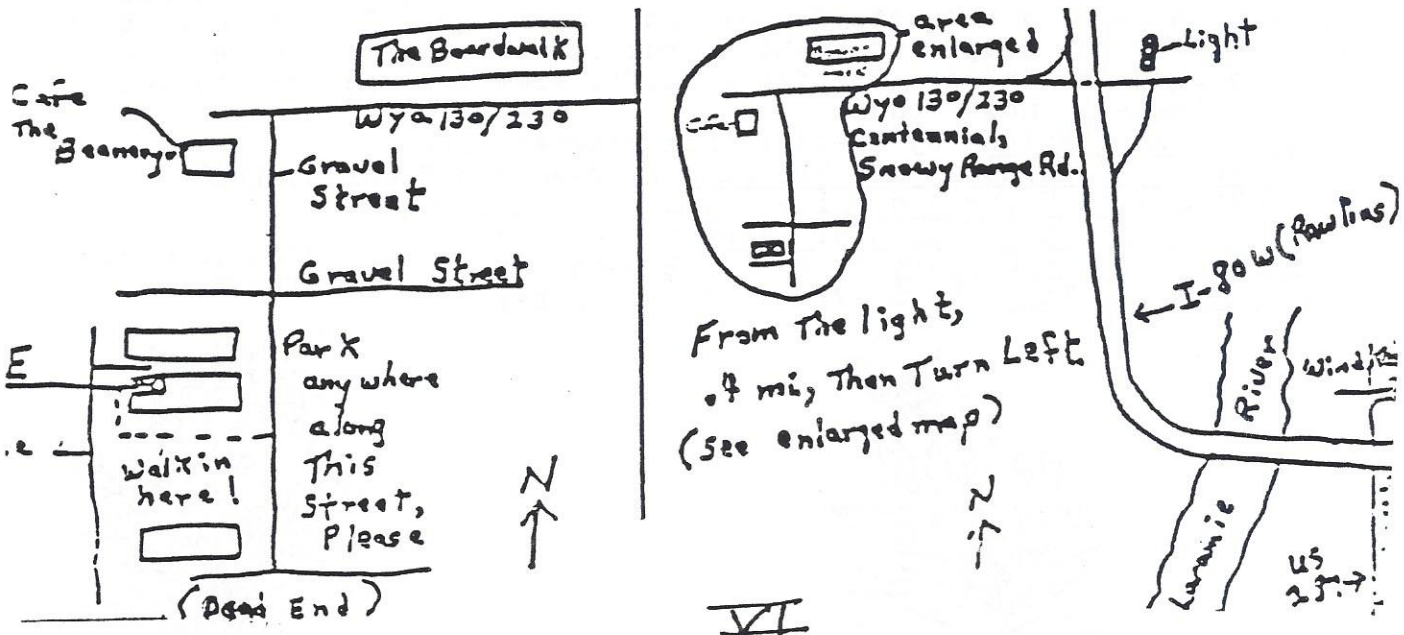 The Boardwalk
Cafe
The
Beamery
Wyo 130/230
Gravel
Street
Gravel Street
E
Park
anywhere
along
This
Street,
Please
Walk in
here!
N
(Dead End)
area
enlarged
Light
Cafe
Wyo 130/230
Centennial,
Snowy Range Rd.
I-80 W (Rawlins)
From The light,
.4 mi, Then Turn Left
(see enlarged map)
N
River
Wind
Laramie
US
VI